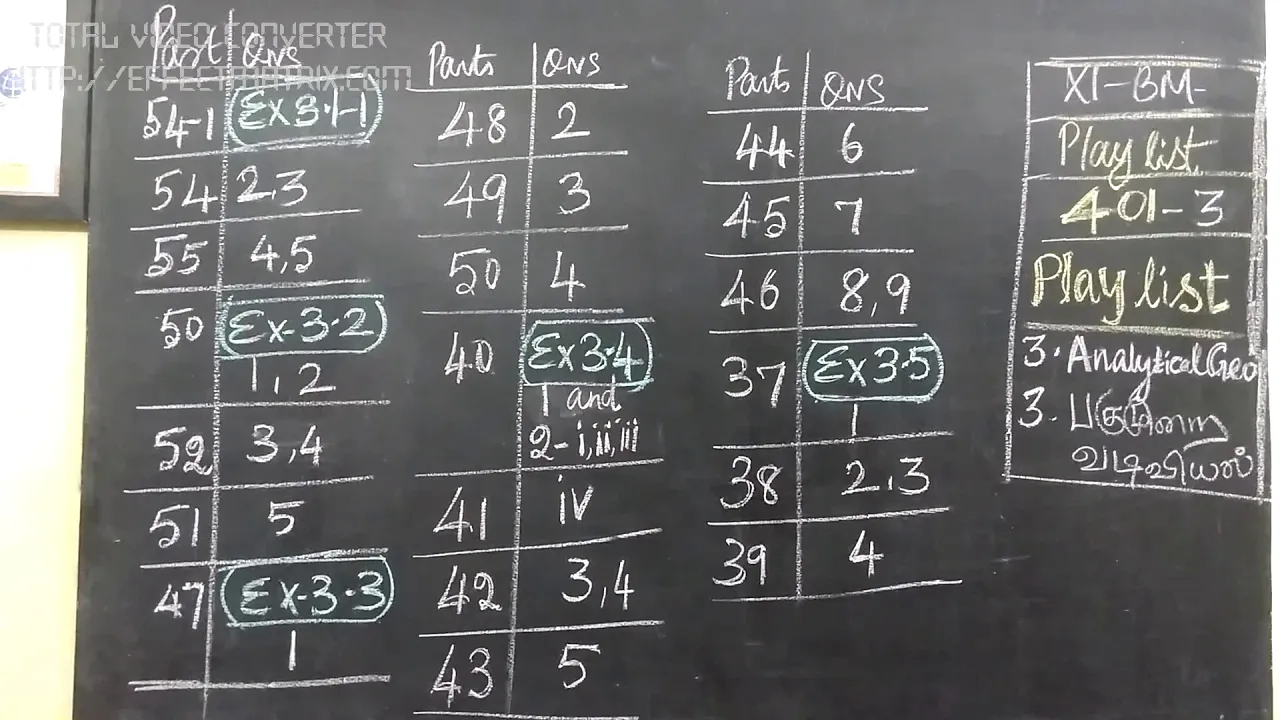 TOTAL VIDEO CONVERTER
HTTP://EFFECTMATRIX.COM
Part QNS
54-1 Ex3.1-1
54 2,3
55 4,5
50 Ex-3.2
1,2
52 3,4
51 5
47 Ex-3.3
1
Parts QNS
48 2
49 3
50 4
40 Ex3.4
1 and
2-i,ii,iii
41 iv
42 3,4
43 5
Parts QNS
44 6
45 7
46 8,9
37 Ex3.5
1
38 2,3
39 4
XI-BM-
Play list
401-3
Play list
3. Analytical Geo
3. பகுமுறை
வடிவியல்